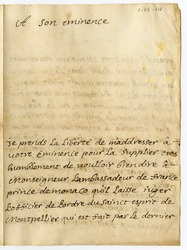 A son eminence
je prends la liberté de m'addresser à
votre Eminence pour la supplier tres
humblement de vouloir Etendre à
Monseigneur L'ambassadeur de france
prince de monaco quil laisse juger
l'officier de l'ordre du sainct esprit de
Montpellier qui est fait par le dernier